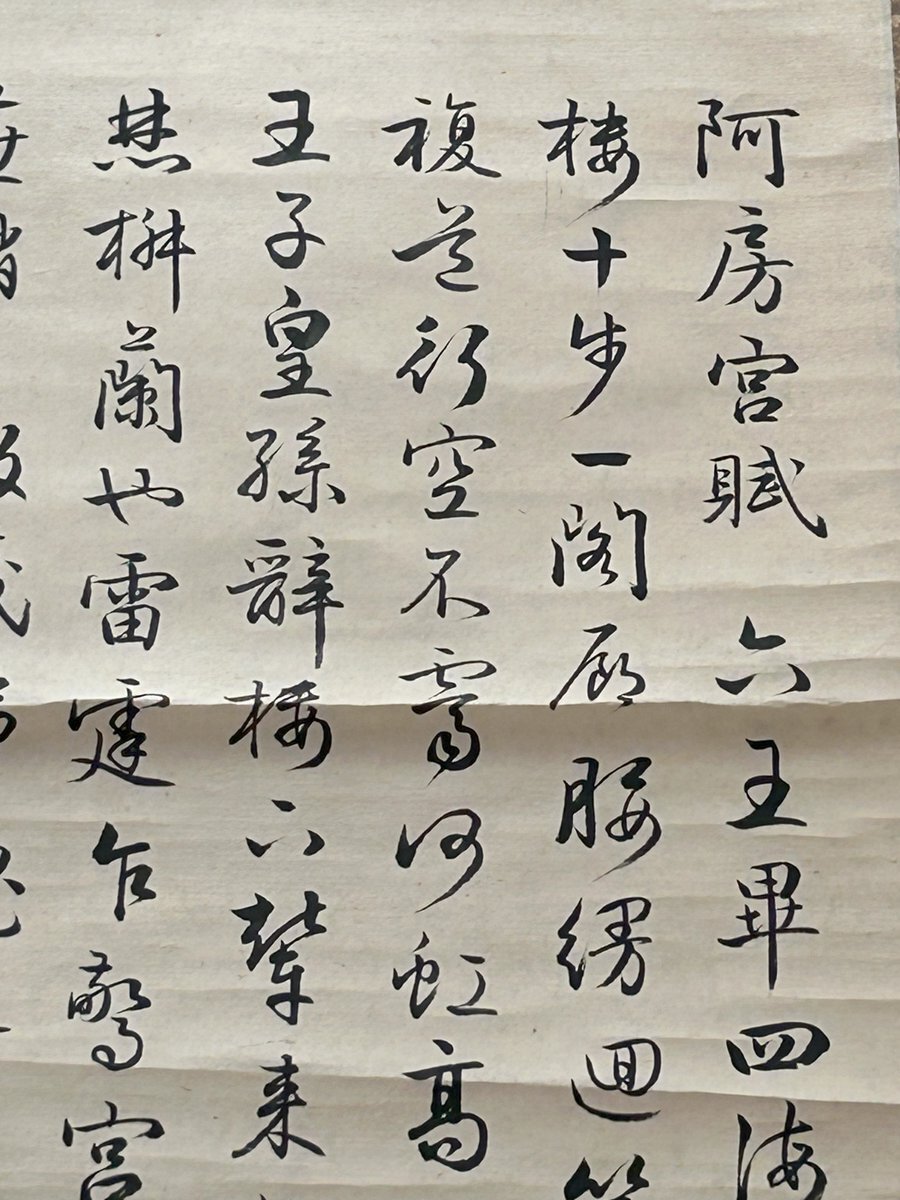 阿房宫賦 六王畢四海
楼十步一閣廊腰縵迴
複道行空不霽何虹高
王子皇孫辭楼下輦来
焚椒蘭也雷霆乍驚宫